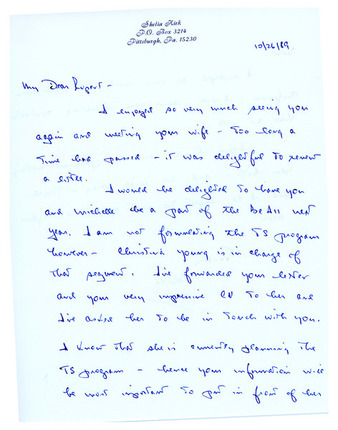 Shelia Kirk
P.O. Box 3214
Pittsburgh, Pa. 15230
10/26/89
My Dear Rupert -
I enjoyed so very much seeing you
again and meeting your wife - Too long a
time has passed - it was delightful to renew
a
I would be delighted to have you
and Michelle be a part of the Be All next
year. I am not formulating the TS program
however - Christina Young is in charge of
that segment. I've forwarded your letter
and your very impressive CV to her and
I've asked her to be in touch with you.
I know that she is currently planning the
TS program - hence your information will
be most important to put in front of her